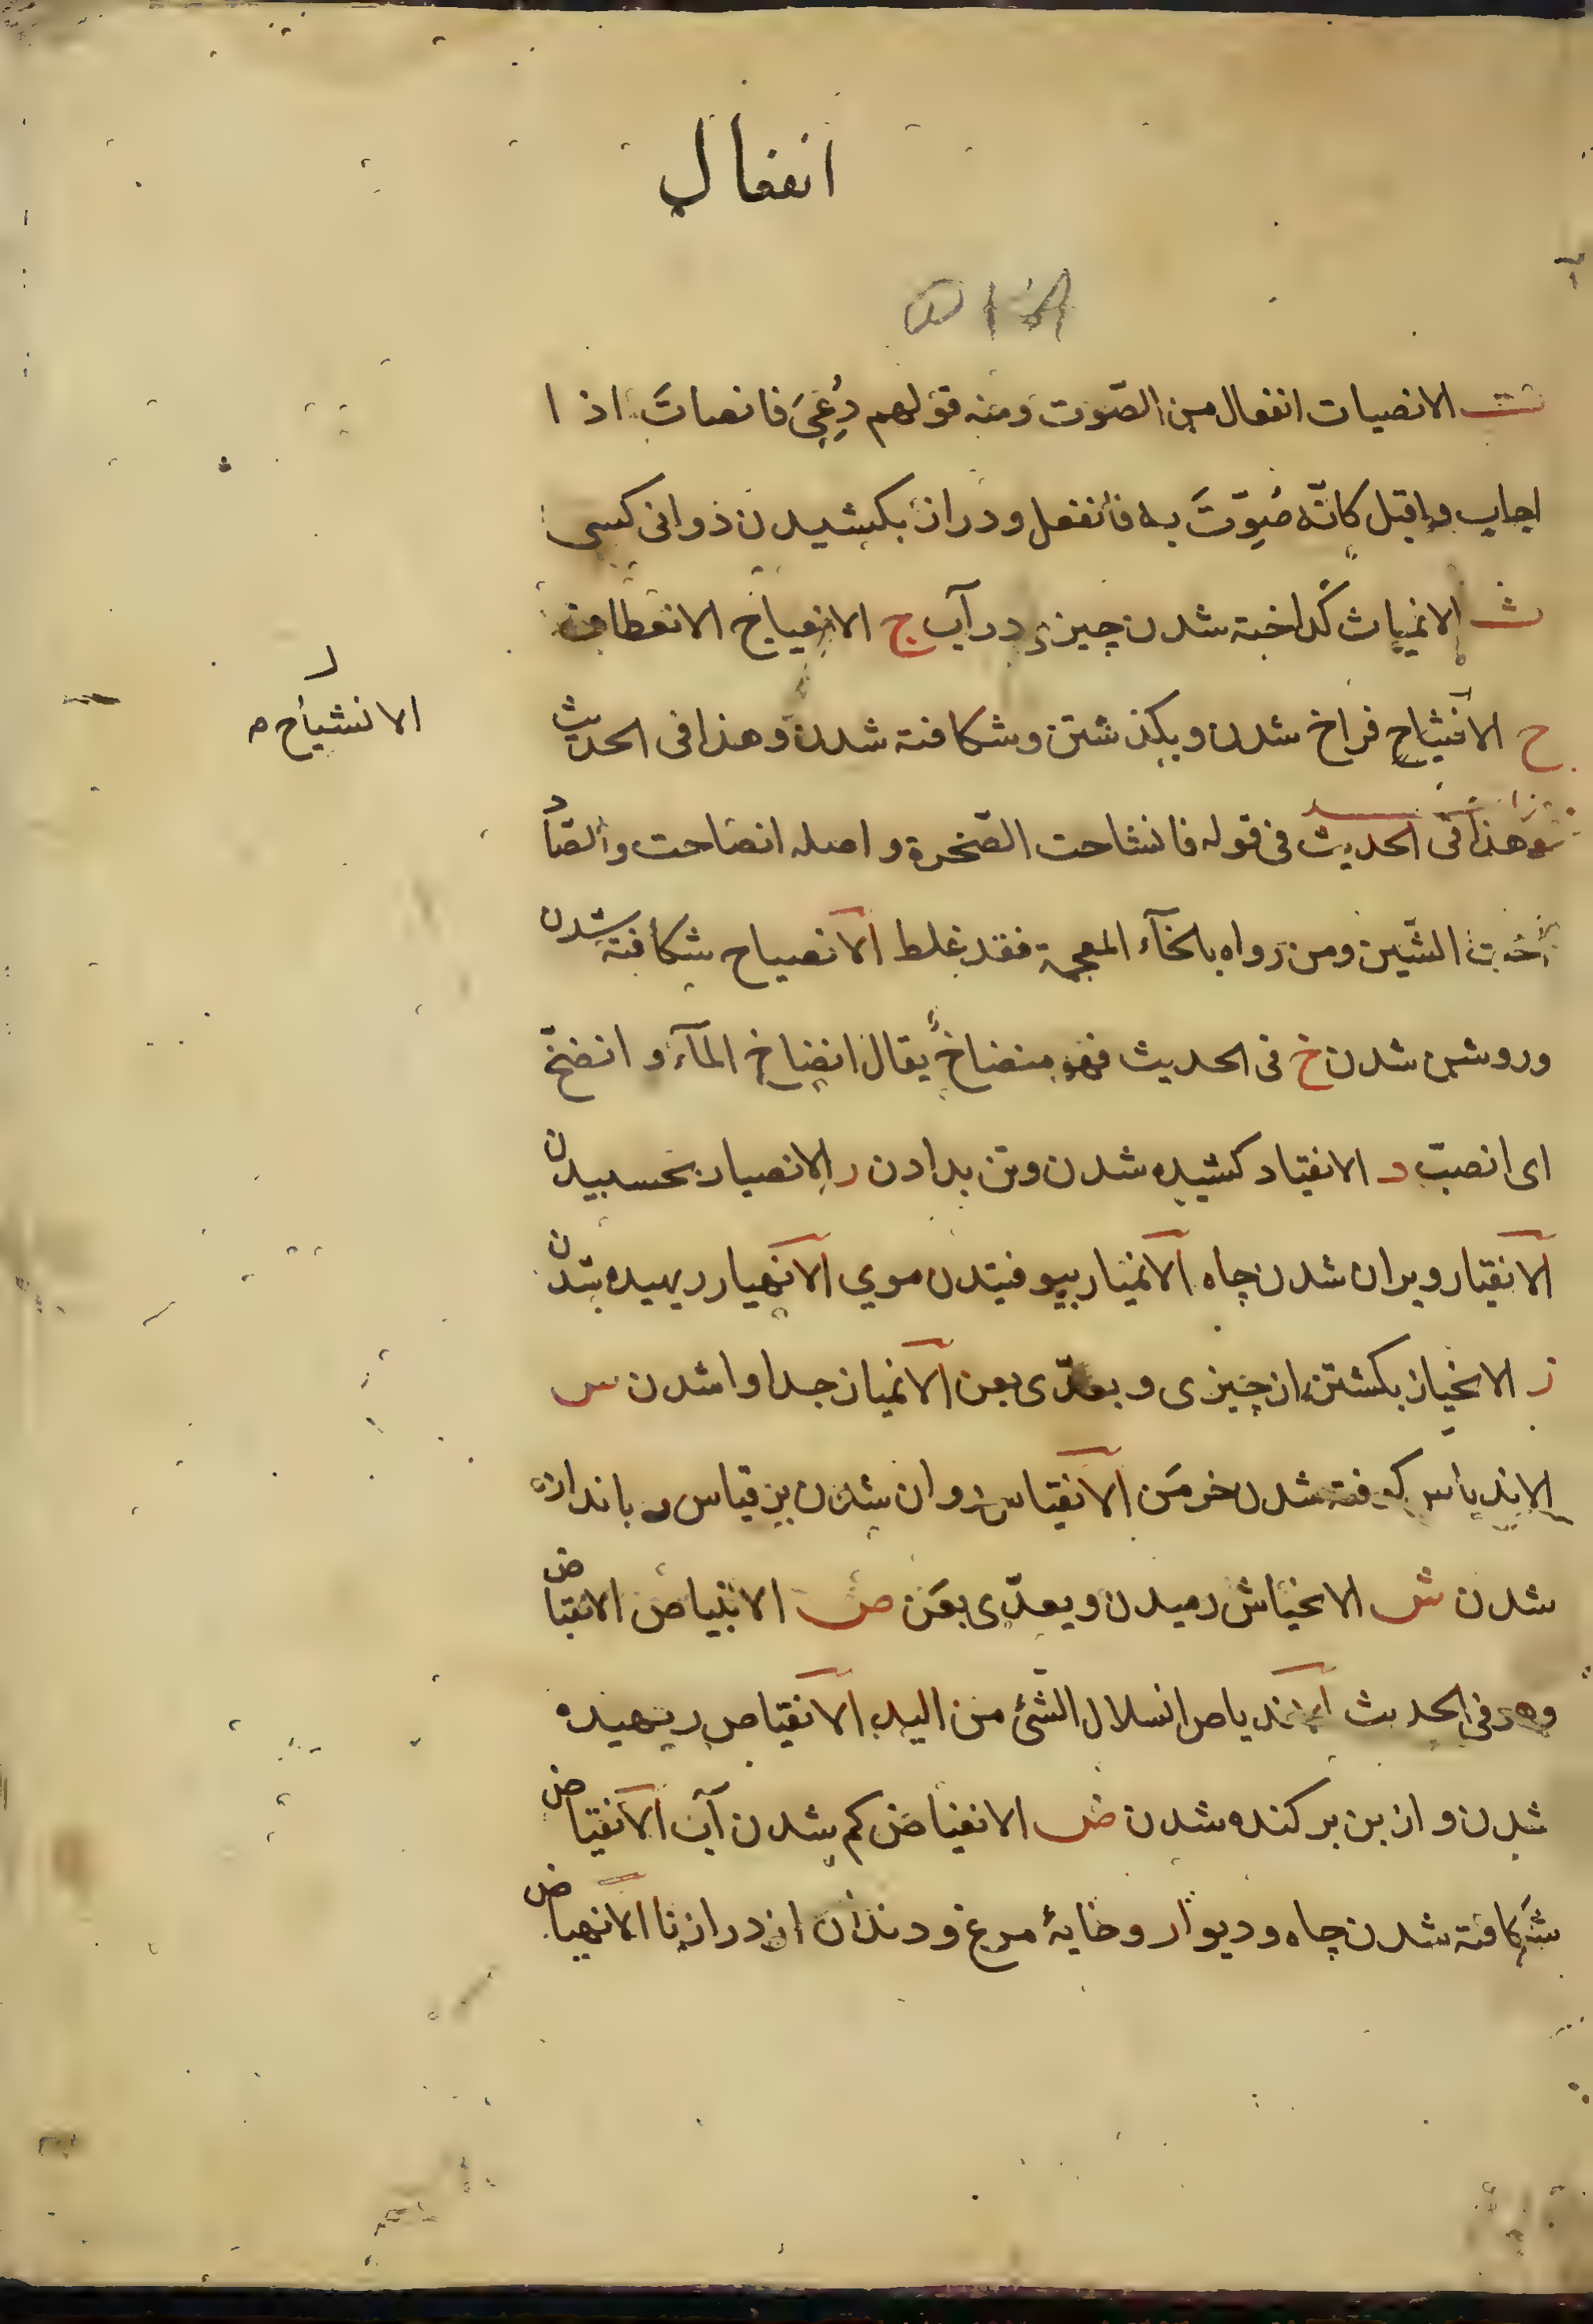 انفعال
ت الانصيات انفعال من الصّوت ومنه قولهم دُعِيَ فانصاتَ اذا
اجاب واقبل كانّه صُوِّتَ به فانفعل ودراز بكشيدن ذوانى كسى
ث الانمياث گداخته شدن چيزى در آب ج الانعياج الانعطاف
ح الانشياح فراخ شدن وبكذشتن وشكافته شدن وهذا فى الحديث
الانشياح م
وهذا فى الحديث فى قوله فانشاحت الصّخرة واصله انصاحت والصّاد
اخت الشّين ومن رواه بالخآء المعجمة فقد غلط الانصياح شكافته شدن
وروشن شدن خ فى الحديث فهو منضاخٌ يقال انضاخ المآء و انضخّ
اى انصبّ د الانقياد كشيده شدن وتن بدادن ر الانصيار بخسبيدن
الانقيار ويران شدن چاه الانميار بيوفتيدن موي الانهيار ريهيده شدن
ز الانحياز بكشتن از چيزى و يعدّى بعن الانمياز جدا وا شدن س
الاندياس كوفته شدن خرمن الانقياس روان شدن بر قياس و باندازه
شدن ش الانحياش رميدن ويعدّى بعَن ص الانبياص الانقباض
وهو فى الحديث الاندياص انسلال الشّئ من اليد الانقياص ريهيده
شدن و از بن بركنده شدن ض الانغياض كم شدن آب الانقياض
شكافته شدن چاه و ديوار وخايهٔ مرغ و دندان از درازنا الانهياض